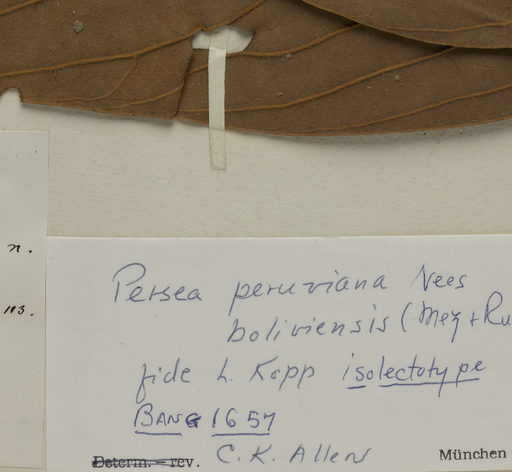 n.
113.
Persea peruviana Nees
boliviensis (Mez + Ru
fide L. Kopp isolectotype
BANG 1657
Determ. – rev. C. K. Allen München